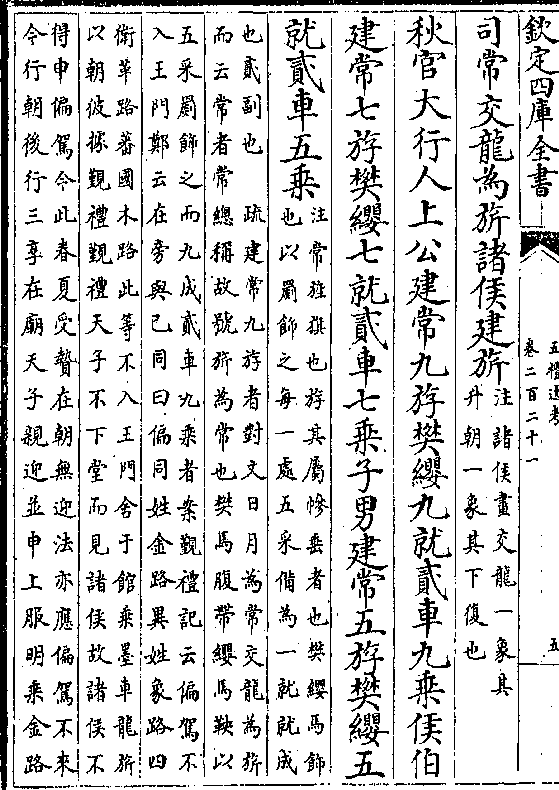 欽定四庫全書
五禮通考
卷二百二十一
五
司常交龍為旂諸侯建旂
注諸侯畫交龍一象其
升朝一象其下復也
秋官大行人上公建常九斿樊纓九就貳車九乗侯伯
建常七斿樊纓七就貳車七乗子男建常五斿樊纓五
就貳車五乗
注常旌旗也斿其屬幓垂者也樊纓馬飾
也以罽飾之每一處五采備為一就就成
也貳副也 疏建常九斿者對文日月為常交龍為旂
而云常者常總稱故號旂為常也樊馬腹帶纓馬鞅以
五采罽飾之而九成貳車九乗者案覲禮記云偏駕不
入王門鄭云在旁與己同曰偏同姓金路異姓象路四
衛革路蕃國木路此等不入王門舍于館乗墨車龍旂
以朝彼據覲禮覲禮天子不下堂而見諸侯故諸侯不
得申偏駕今此春夏受贄在朝無迎法亦應偏駕不來
今行朝後行三享在廟天子親迎並申上服明乗金路